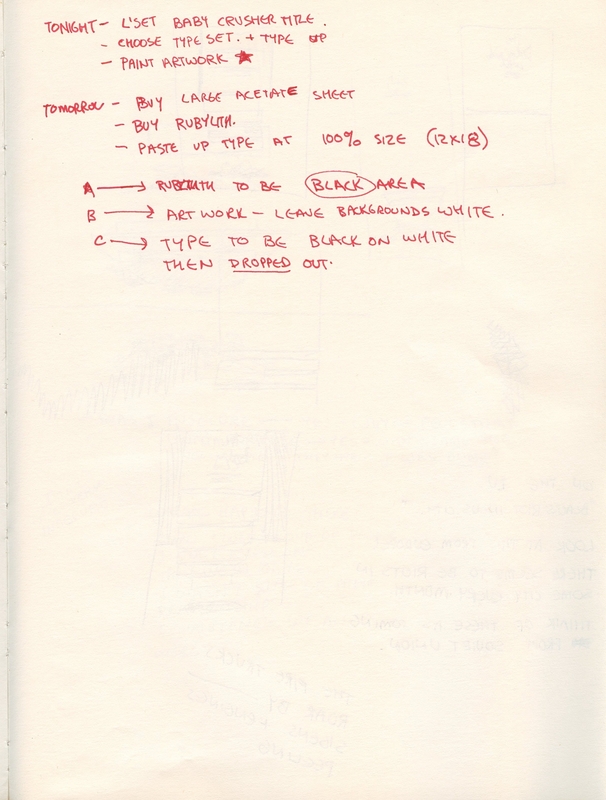 TONIGHT - L'SET BABY CRUSHER TITLE.
- CHOOSE TYPE SET. + TYPE UP
- PAINT ARTWORK ★
TOMORROW - BUY LARGE ACETATE SHEET
- BUY RUBYLITH.
- PASTE UP TYPE AT 100% SIZE (12X18)
A → RUBYLITH TO BE BLACK AREA
B → ART WORK - LEAVE BACKGROUNDS WHITE.
C → TYPE TO BE BLACK ON WHITE
THEN DROPPED OUT.